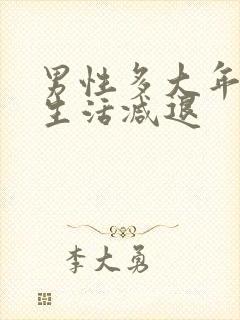 男性多大年
生活减退
李大勇